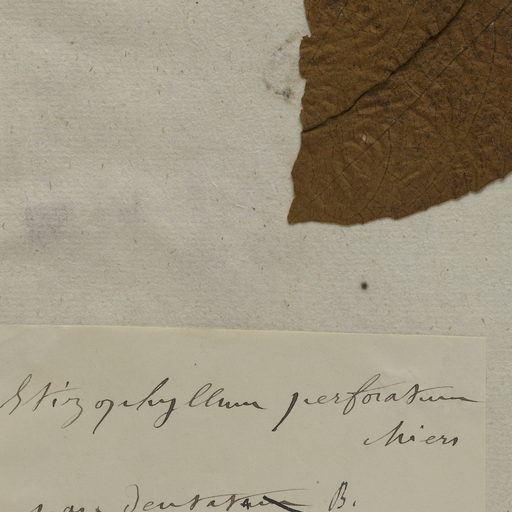 Stizophyllum perforatum
Miers
var. dentatum B.